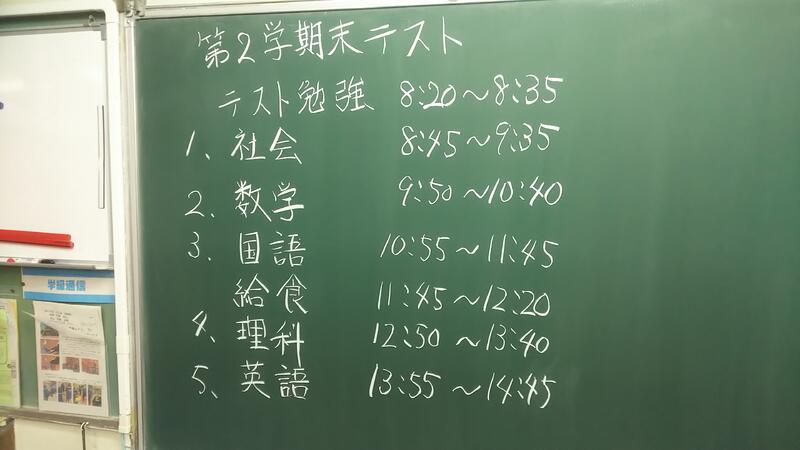 第2学期末テスト
テスト勉強 8:20～8:35
1、社会 8:45～9:35
2、数学 9:50～10:40
3、国語 10:55～11:45
給食 11:45～12:20
4、理科 12:50～13:40
5、英語 13:55～14:45
学級通信